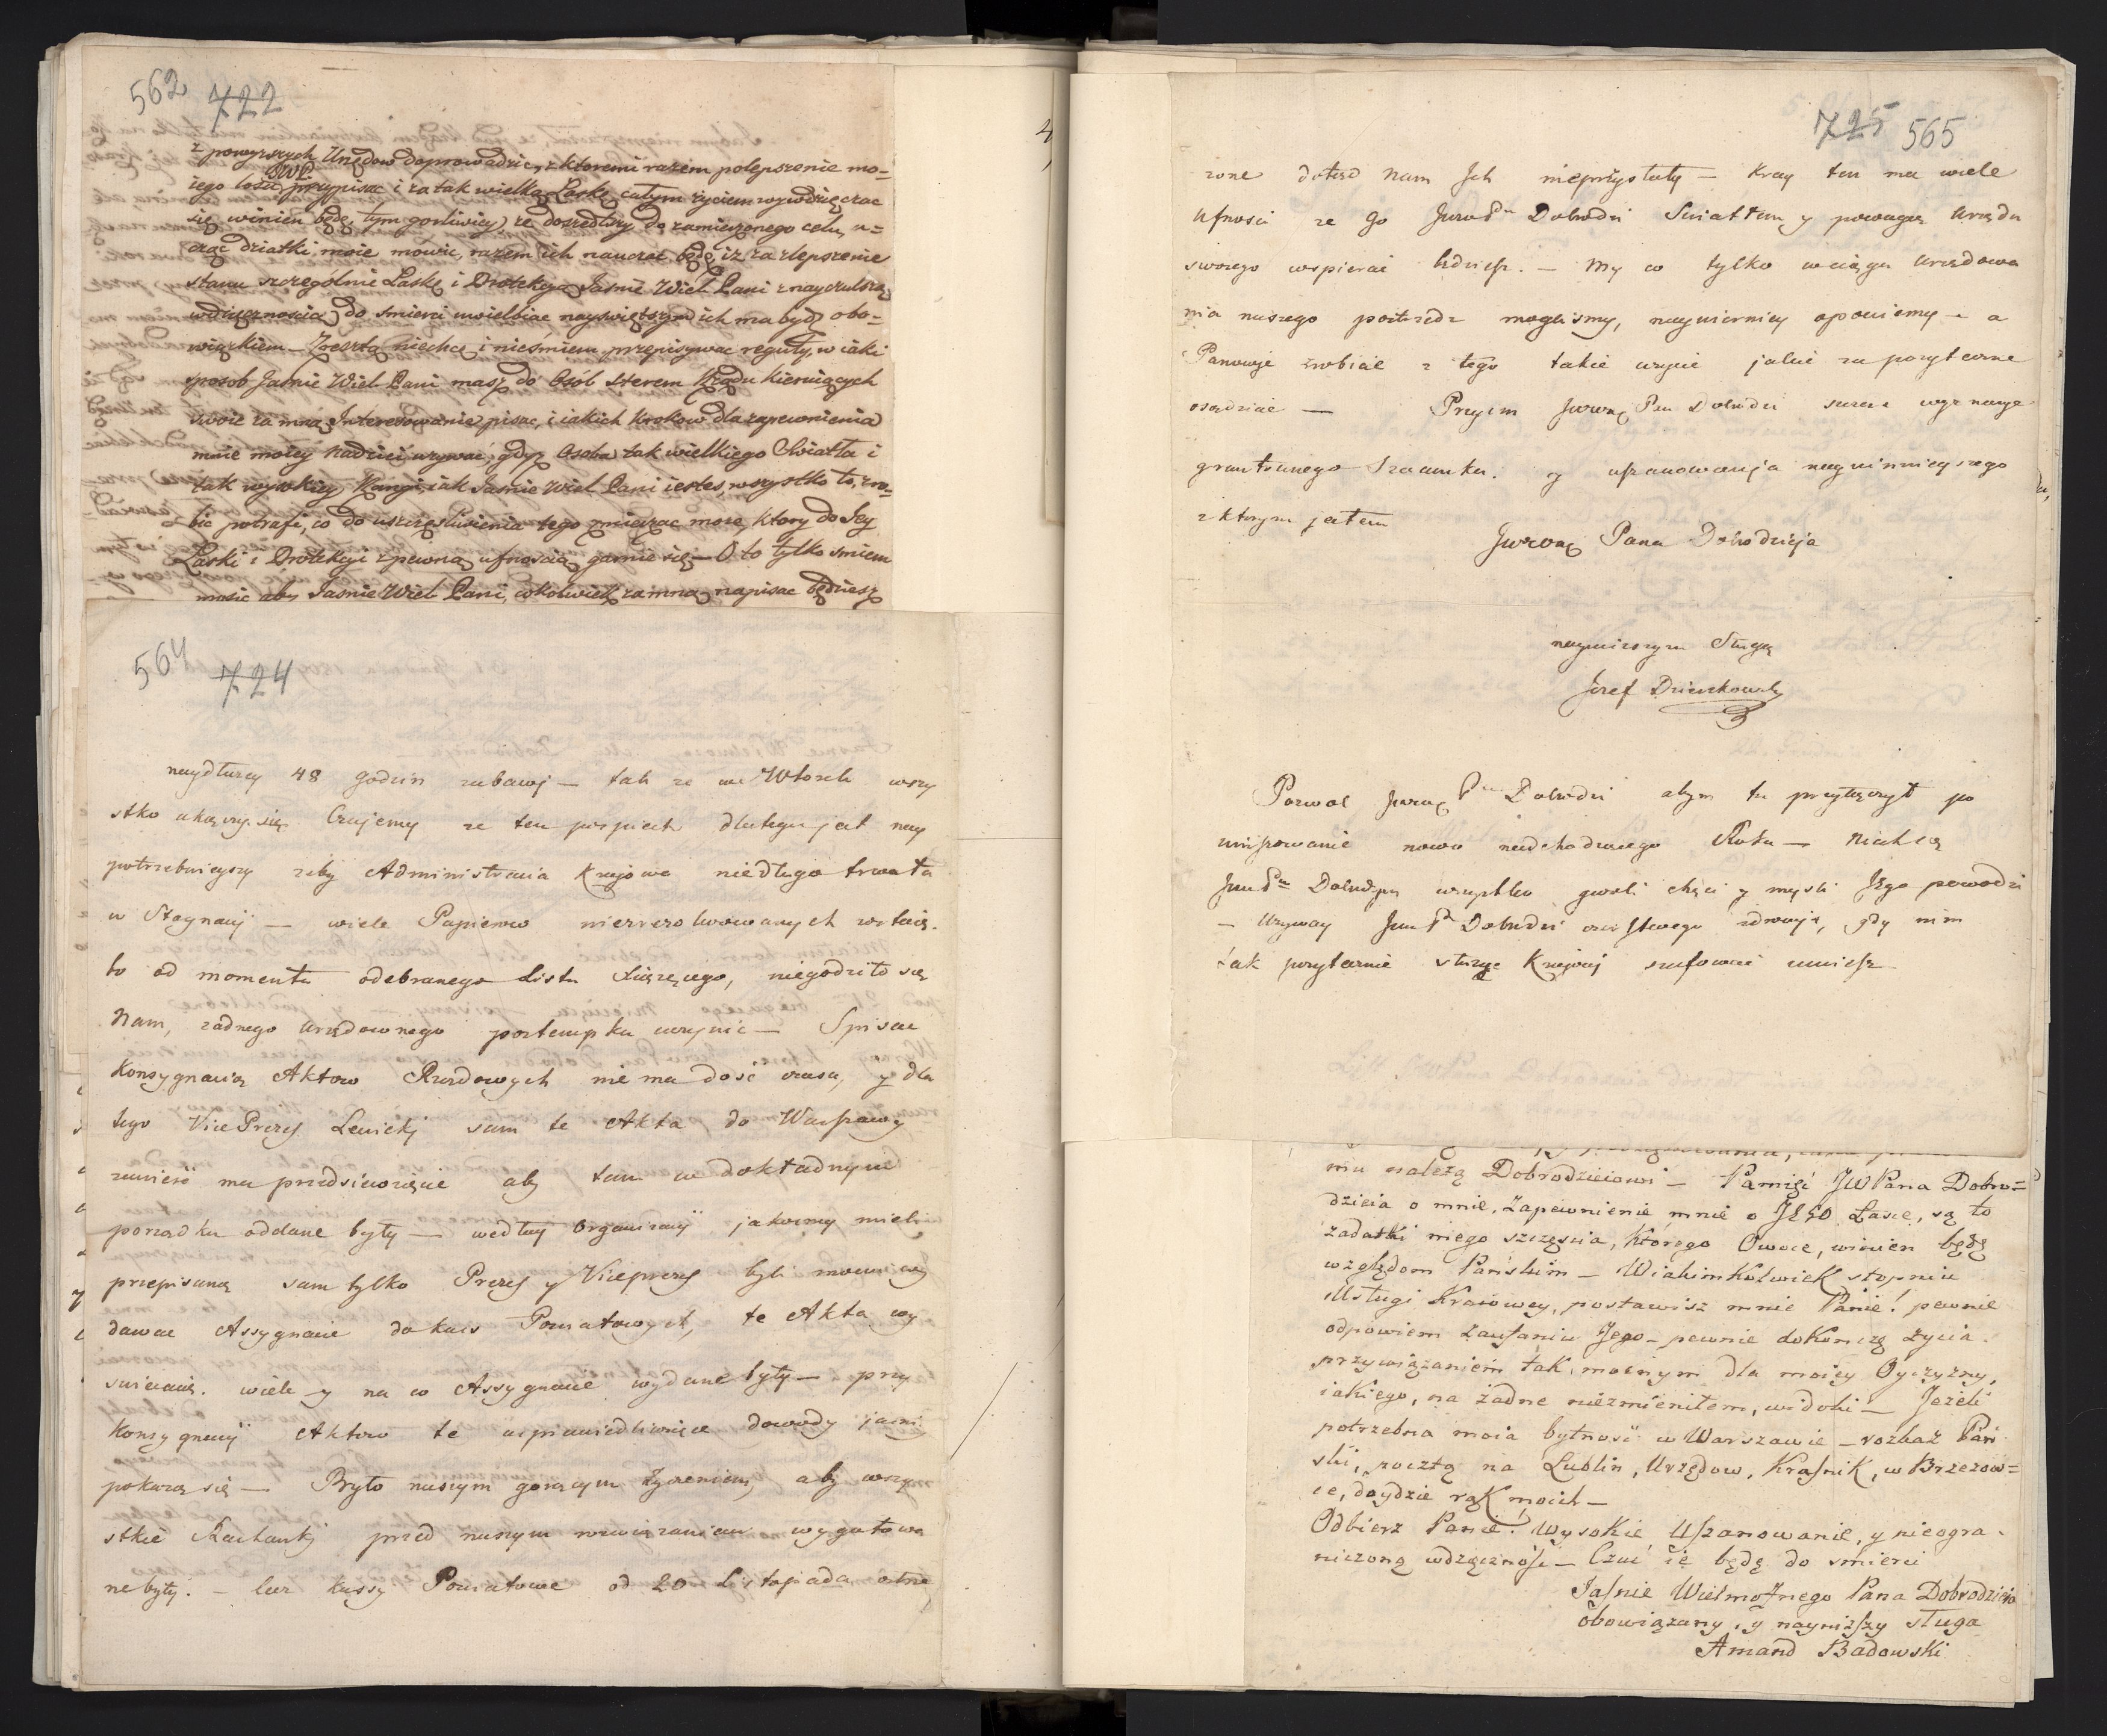 562 722
z powyzszych Urzędow doprowadzic, z ktoremi razem polepszenie mo-
iego losu JWP. przypisac i za tak wielką Łaskę całym zyciem wywdzięczac
się winien będę, tym gorliwiey, ze doszedłszy do zamierzonego celu, u-
cząc dziatki moie mowic, razem ich nauczac będę, iz za zlepszenie
stanu szczegolnie Łaskę i Protekcyą Jasnie Wiel Pani z nayczulszą
wdzięcznoscią do smierci uwielbiac nayswiętszym ich ma bydz obo-
wiązkiem — Zresztą niechcę i niesmiem przepisywac reguły, w iaki
sposob Jasnie Wiel Pani masz do Osób Sterem Rządu kieruiących
swoie za mną Interesowanie pisac, i iakich krokow dla zapewnienia
mnie moiey nadziei uzywac, gdyz Osoba tak wielkiego Swiatła i
tak wysokiey Rangi, iak Jasnie Wiel Pani iestes, wszystko to, zro-
bic potrafi, co do uszczęsliwienia tego zmierzac moze, ktory do Jey
Łaski i Protekcyi z pewną ufnoscią garnie się — O to tylko smiem
prosic aby Jasnie Wiel Pani, cokolwiek za mną napisac będziesz
564 724
naydłuzey 48 godzin zabawj — tak ze we Wtorek wszy
stko ukączy się. Czujemy ze ten pospiech dlatego jest nay
potrzebnieyszy zeby Administracia Krajowa niedługo trwała
w Stagnacij — wiele Papierow niezrezolwowanych zostaię.
bo od momentu odebranego Listu Xiązęcego, niegodziło się
Nam, zadnego urzędownego postempku uczynic — Spisac
Konsygnacią Aktow Rządowych nie ma dość czasu, y dla
tego Vice Prezes Lewickj sam te Akta do Warszawy
zawieść ma przedsięwzięcie aby tam w dokładnym
porządku oddane były — według Organizacij jakąsmy mieli
przepisaną sam tylko Prezes y Viceprezes byli mocni wy
dawac Assygnacie do kass Powiatowych, te Akta wy
swiecaią. wiele y na co Assygnacie wydane były — przy
Konsygnacij Aktow te usprawiedliwiające dowody jasni
pokazą się — Było naszym gorącym zyczeniem, aby wszy
stkie Rachunkj przed naszym rozwiązaniem wygotowa
ne były. — lecz kassy Powiatowe od 20 Listopada otno
725 565
zone dotąd nam Ich nieprzystały — Kray ten ma wiele
Ufnosci ze go Jwo Pn Dobrodzi Swiatłem y powagą Urzędu
swoiego wspierać będziesz. — My co tylko w ciągu Urzędowa
nia naszego postrzedz moglismy, naywierniey opowiemy — a
Panowie zrobicie z tego takie uzycie jakie za pozyteczne
osądzicie — Przyim Jwwny Pan Dobrodzi szczere wyznanie
gruntownego Szacunku. y uszanowanja nayuinnieyszego
z ktorym jestem
Jwwnego Pana Dobrodzieja
nayniszszym Sługą
Jozef Dzierzkowski
Pozwol Jwwny Pn Dobrodzi abym tu przyłączył po
winszowanie nowo nadchodzącego Roku — Niech są
Jwo Pn Dobrodzieju wszystko gwoli chęci y mysli Jego powodzi
— Uzyway Jwo Pn Dobrodzi czerstwego zdrowja, gdy nim
tak pozytecznie słuzge Krajowj szafować umiesz
mu nalezą Dobrodzieiowi — Pamięć JWPana Dobro=
dzieia o mnie, Zapewnienie mnie o JEGO Łasce, są to
zadatki mego szczęscia, ktorego Owoce, winien będę
względom Pańskim — Wiakimkolwiek stopniu
Usługi Kraiowey, postawisz mnie Panie! pewnie
odpowiem Zaufaniu Jego — pewnie dokończę Zycia.
przywiązaniem tak mocnym dla moiey Oyczyzny,
iakiego, na zadne niezmieniłem, widoki — Jezeli
potrzebna moia bytność w Warszawie — rozkaz Pań
ski, pocztą na Lublin, Urzędow, Kraśnik, w Brzezow=
ce, doydzie rąk moich —
Odbierz Panie! Wysokie Uszanowanie, y nieogra-
niczoną wdzięczność — Czuć ię będę do smierci
Jaśnie Wielmoznego Pana Dobrodzieia
obowiązany, y nayniższy sługa
Amand Badowski